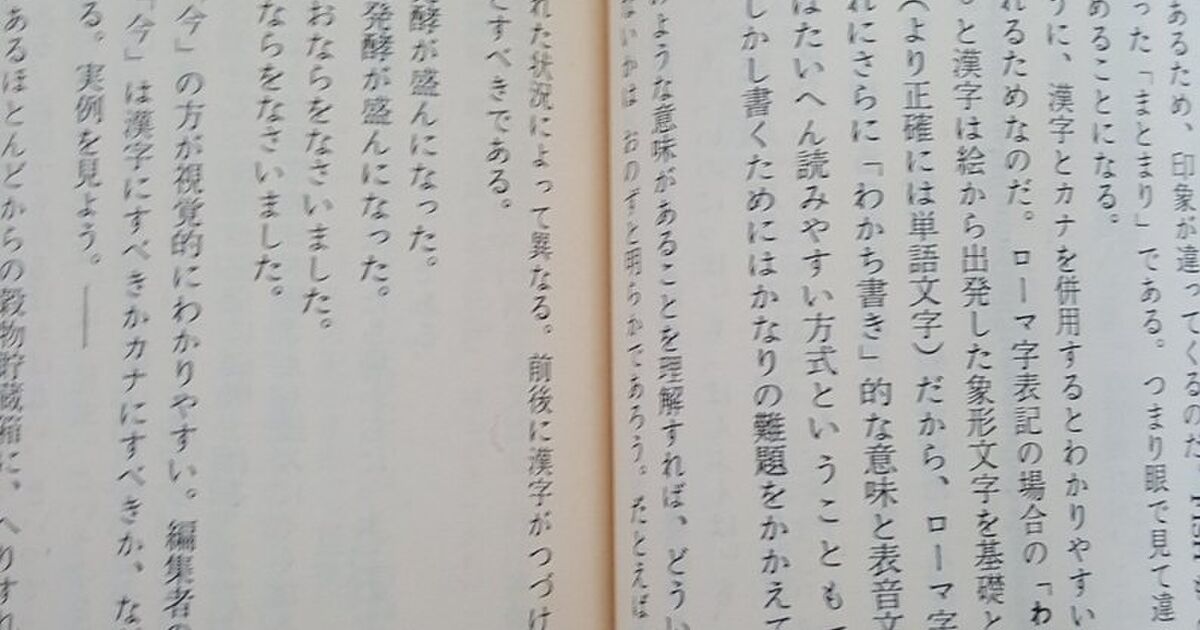 あるため、印象が違ってくるのだ。
った「まとまり」である。つまり眼で見て違
めることになる。
うに、漢字とカナを併用するとわかりやすい
れるためなのだ。ローマ字表記の場合の「わ
と漢字は絵から出発した象形文字を基礎と
(より正確には単語文字)だから、ローマ字
れにさらに「わかち書き」的な意味と表音文
はたいへん読みやすい方式ということも
しかし書くためにはかなりの難題をかかえて
のような意味があることを理解すれば、どうい
ないかは おのずと明らかであろう。たとえば
れた状況によって異なる。前後に漢字がつづけ
とすべきである。
発酵が盛んになった。
発酵が盛んになった。
おならをなさいました。
ならをなさいました。
今」の方が視覚的にわかりやすい。編集者の
「今」は漢字にすべきかカナにすべきか、な
る。実例を見よう。――
あるほとんどからの穀物貯蔵箱に、へりすれ